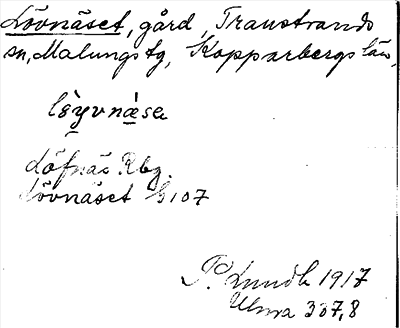 Lövnäset, gård, Transtrands
sn, Malungs tg, Kopparbergs län,
Löfnäs Rbz.
Lövnäset G107
P. Lundh 1917
Ulma 337,8